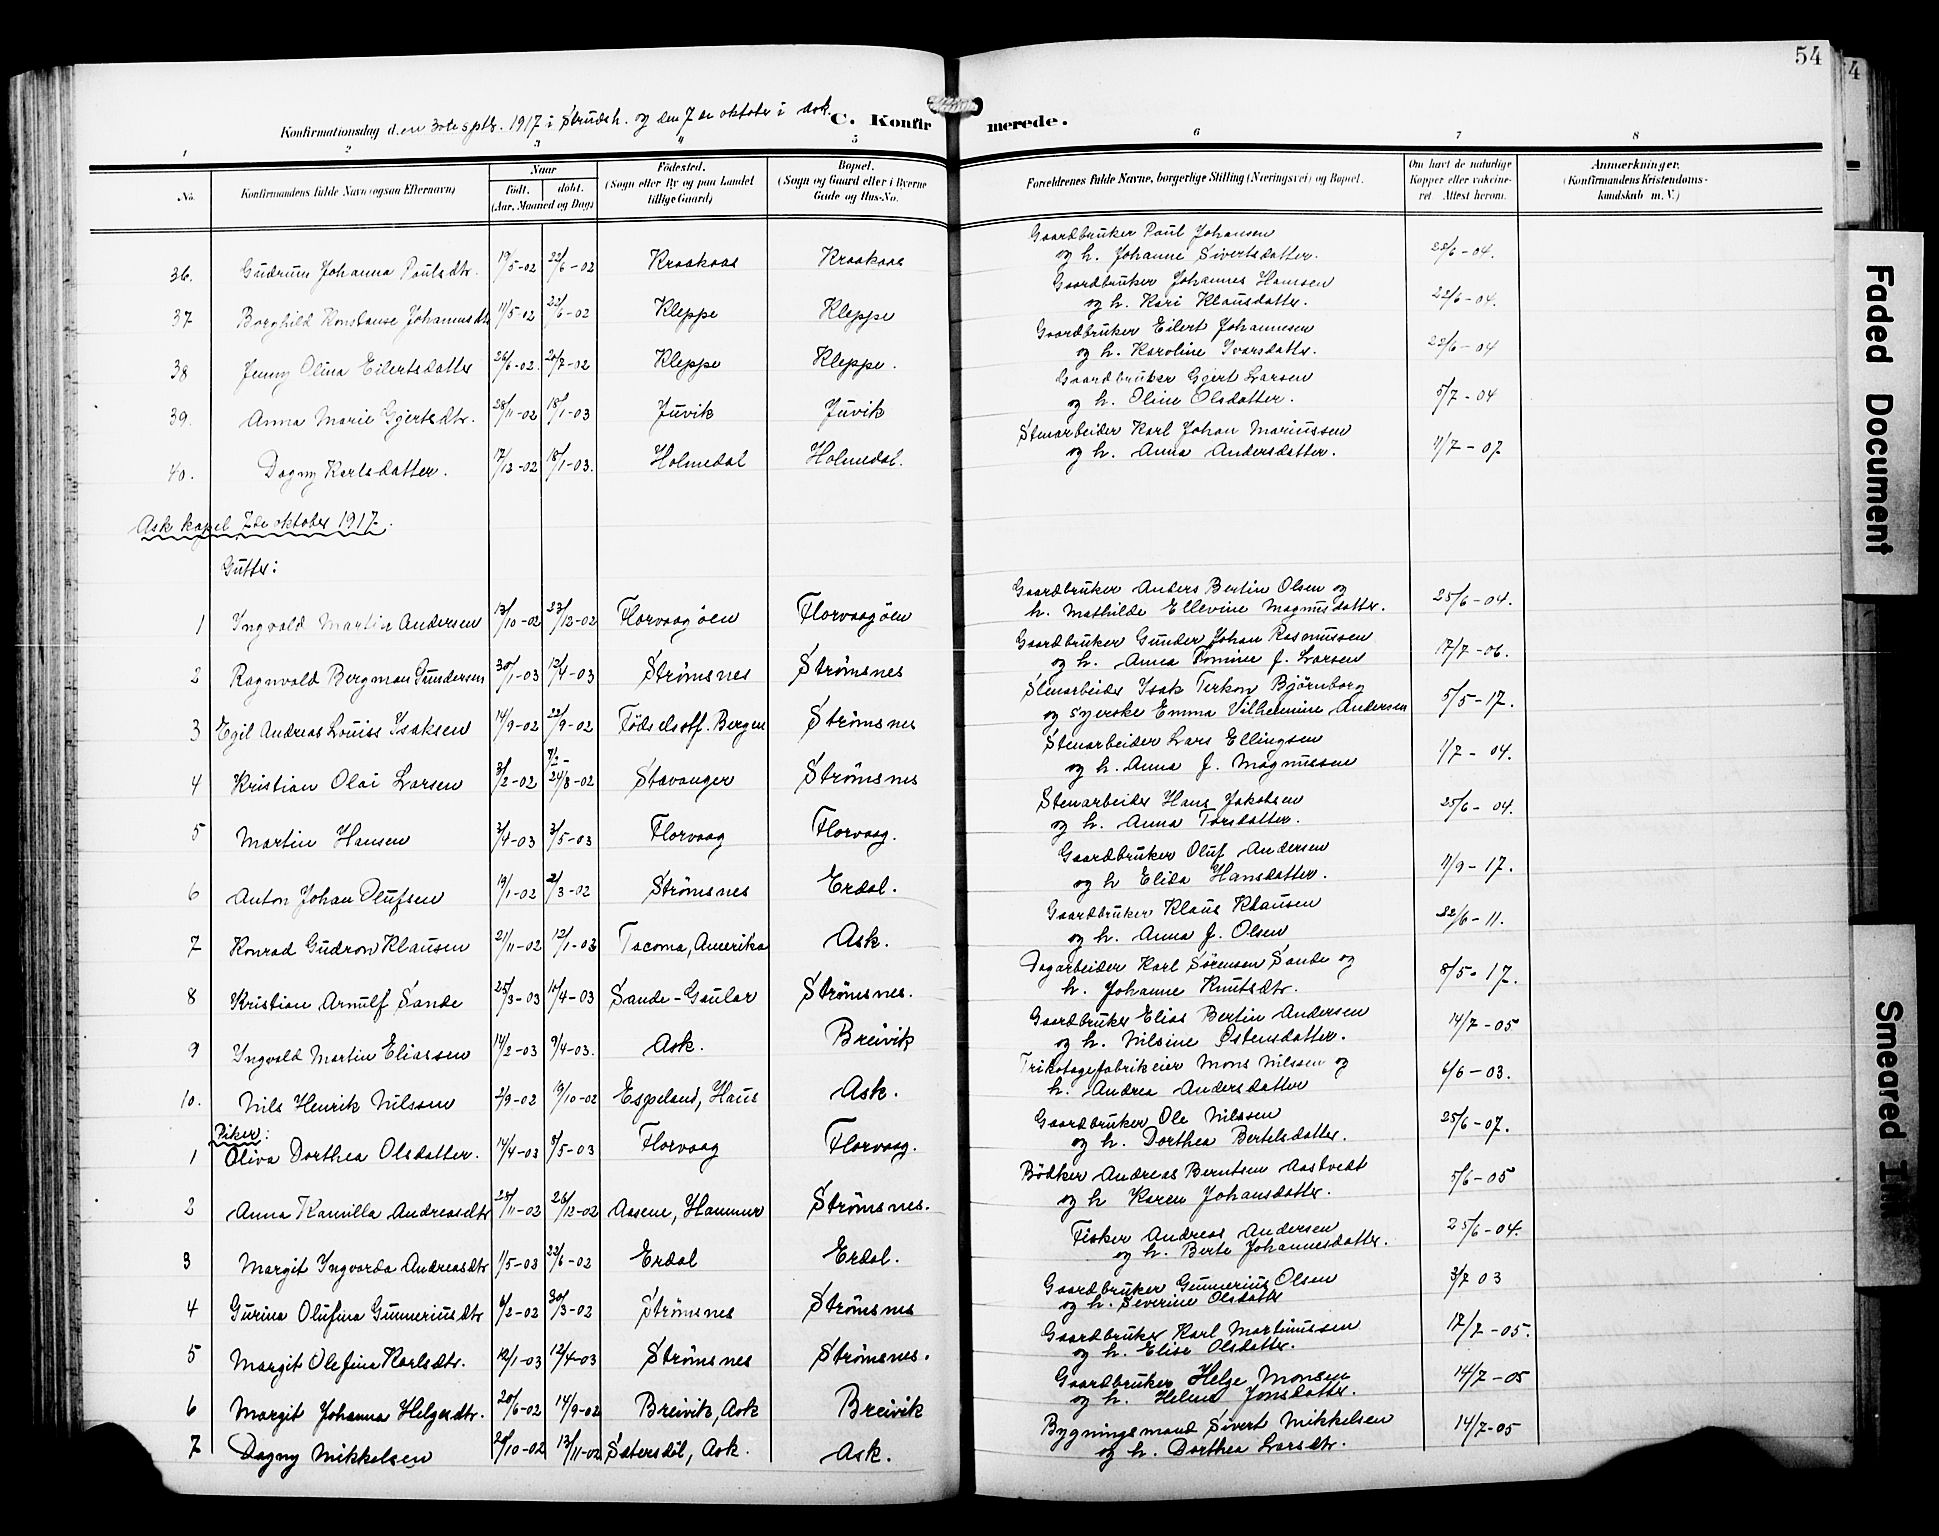 54
4
Konfirmationsdag den 30te sptbr. 1917 i Strudsh. og den 7de oktober i Ask.
C. Konfirmerede.
1 2 3 4 5 6 7 8
No.
Konfirmandens fulde Navn (ogsaa Efternavn)
Naar
født. døbt.
(Aar, Maaned og Dag)
Fødested.
(Sogn eller By og paa Landet
tillige Gaard)
Bopæl.
(Sogn og Gaard eller i Byerne
Gade og Hus-No.
Forældrenes fulde Navne, borgerlige Stilling (Næringsvei) og Bopæl.
Om havt de naturlige
Kopper eller vaccine-
ret. Attest herom.
Anmærkninger.
(Konfirmandens Kristendoms-
kundskab m. V.)
36. Gudrun Johanna Paulsdtr. 19/5-02 22/6-02 Kraakaas Kraakaas Gaardbruker Paul Johansen
og h. Johanne Sivertsdatter. 28/6-04.
37 Borghild Konstanse Johannesdtr 11/5-02 22/6-02 Kleppe Kleppe Gaardbruker Johannes Hansen
og h. Kari Klausdatter. 22/6-04.
38 Jenny Olina Eilertsdatter 26/6-02 20/7-02 Kleppe Kleppe. Gaardbruker Eilert Johannesen
og h. Karoline Ivarsdatter. 22/6-04
39. Anna Marie Gjertsdtr. 28/11-02 18/1-03 Juvik Juvik Gaardbruker Gjert Larsen
og h. Oline Olsdatter. 5/7-04
40. Dagny Karlsdatter. 17/12-02 18/1-03. Holmedal Holmedal. Stenarbeider Karl Johan Mariussen
og h. Anna Andersdatter. 4/7-07
Ask kapel 7de oktober 1917.
Gutter:
1 Ingvald Martin Andersen 13/10-02 23/12-02 Florvaagøen Florvaagøen Gaardbruker Anders Bertin Olsen og
h. Mathilde Ellevine Magnusdatter. 25/6-04.
2 Ragnvald Bergman Gundersen 30/1-03 12/4-03 Strömsnes Strömsnes Gaardbruker Gunder Johan Rasmussen
og h. Anna Tomine f. Larsen 17/7-06.
3 Egil Andreas Louiss Isaksen 14/9-02 22/9-02 Fødselsstf. Bergen Strömsnes Stenarbeider Isak Terkon Björnborg
og syerske Emma Vilhelmine Andersen 5/5-17.
4 Kristian Olai Larsen 3/2-02 7/2- 24/8-02 Stavanger Strömsnes Stenarbeider Lars Ellingsen
og h. Anna f. Magnussen 1/7-04.
5 Martin Hansen 3/4-03 3/5-03 Florvaag Florvaag. Stenarbeider Hans Jakobsen
og h. Anna Torsdatter. 25/6-04.
6 Anton Johan Olufsen 19/1-02 2/3-02 Strömsnes Erdal. Gaardbruker Oluf Andersen
og h Elida Hansdatter. 4/9-17.
7 Konrad Gudron Klausen 21/11-02 12/1-03 Tacoma, Amerika Ask. Gaardbruker Klaus Klausen
og h. Anna f. Olsen 22/6-11.
8 Kristian Arnulf Sande 25/3-03 10/4-03 Sande-Gaular Strömsnes. Dagarbeider Karl Sørensen Sande og
h. Johanne Knutsdtr. 8/5-17.
9 Ingvald Martin Eliassen 14/2-03 9/4-03. Ask. Breivik Gaardbruker Elias Bertin Andersen
og h. Nilsine Østensdatter. 14/7-05
10. Nils Henrik Nilssen 2/9-02 19/10-02 Espeland, Haus Ask. Trikotagefabrikeier Mons Nilssen og
h. Andrea Andersdatter 6/6-03.
Piker:
1 Oliva Dorthea Olsdatter. 14/4-03 3/5-03 Florvaag Florvaag. Gaardbruker Ole Nilssen
og h. Dorthea Bertelsdatter. 25/6-07.
2 Anna Kamilla Andreasdtr 25/11-02 26/12-02 Aasene, Hammer Strömsnes. Bödker Andreas Berntsen Aastvedt
og h Karen Johansdatter. 5/6-05
3 Margit Ingvarda Andreasdtr 1/5-03 22/6-02 Erdal Erdal. Fisker Andreas Andersen
og h. Berte Johannesdatter. 25/6-04.
4 Gurina Olufina Gunneriusdtr 6/2-02 30/3-02 Strömsnes Strömsnes Gaardbruker Gunnerius Olsen
og h. Severine Olsdatter 3/7 03
5 Margit Olefina Karlsdtr. 12/1-03 12/4-03 Strömsnes Strömsnes. Gaardbruker Karl Martinussen
og h. Elise Olsdatter. 17/7-05.
6 Margit Johanna Helgesdtr. 20/6-02 14/9-02 Breivik, Ask Breivik Gaardbruker Helge Monsen
og h. Helene Jonsdatter. 14/7-05
7 Dagny Mikkelsen 20/10-02 13/11-02 Sætersdöl, Ask. Ask. Bygningsmand Sivert Mikkelsen
og h. Dorthea Larsdtr. 14/7-05
Faded Document
Smeared Ink